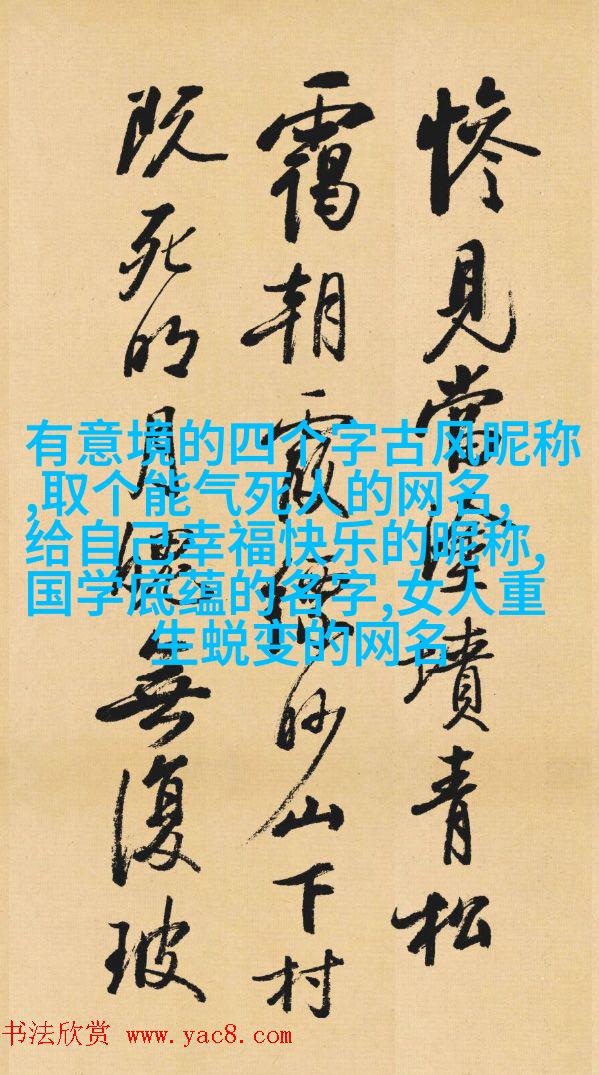 慘見當塗墳青松
靄朝霞縹眇山下村
既死明月魄無復玻
有意境的四个字古风昵称
,取个能气死人的网名,
给自己幸福快乐的昵称,
国学底蕴的名字,女人重
生蜕变的网名
书法欣赏 www.yac8.com